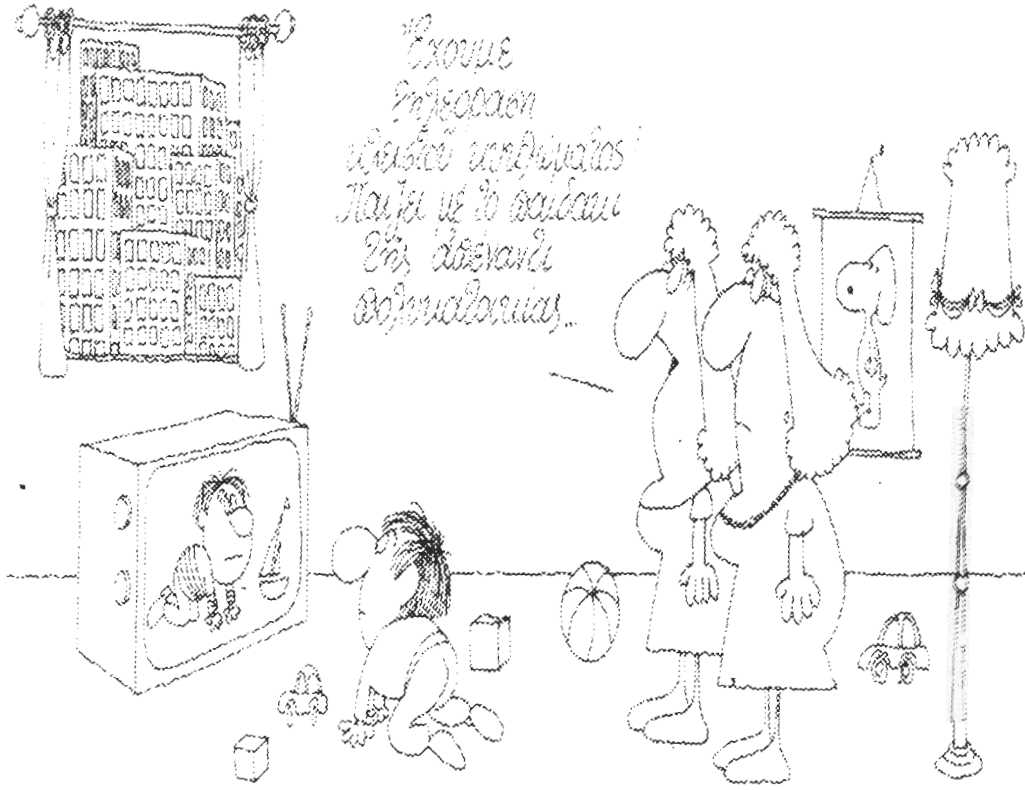 "Έχουμε
τηλεόραση
κλειστοῦ κυκλώματος!
Παίζει μέ τό παιδάκι
τῆς ἀπέναντι
πολυκατοικίας...